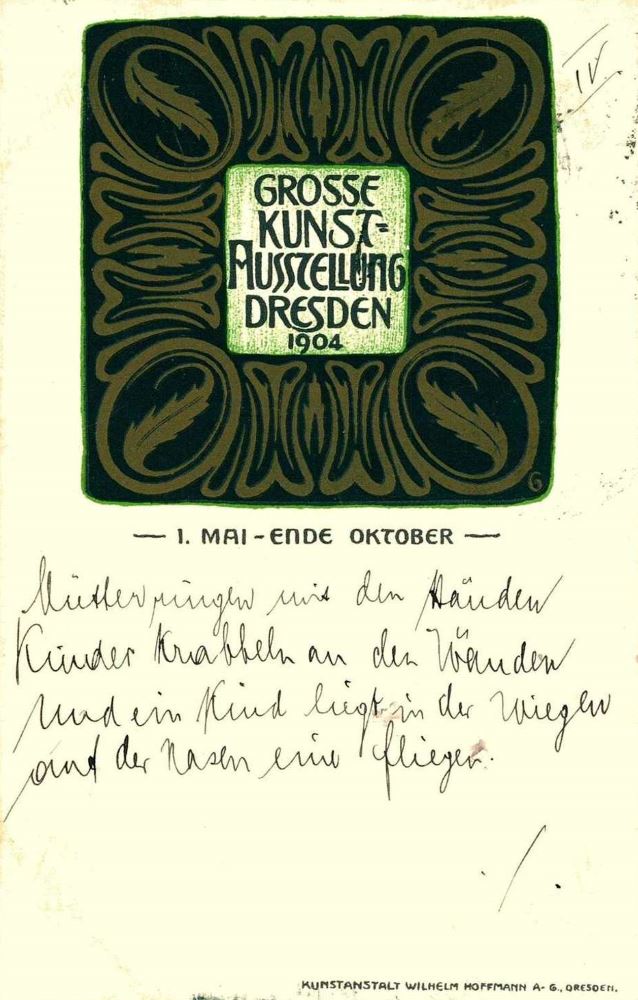 IV
GROSSE
KUNST=
AUSSTELLUNG
DRESDEN
1904
G
— 1. MAI - ENDE OKTOBER —
Mütter ringen mit den Händen
Kinder krabbeln an den Wänden
Und ein Kind liegt in der Wiegen
auf der Nasen eine Fliegen.
./.
KUNSTANSTALT WILHELM HOFFMANN A-G., DRESDEN.